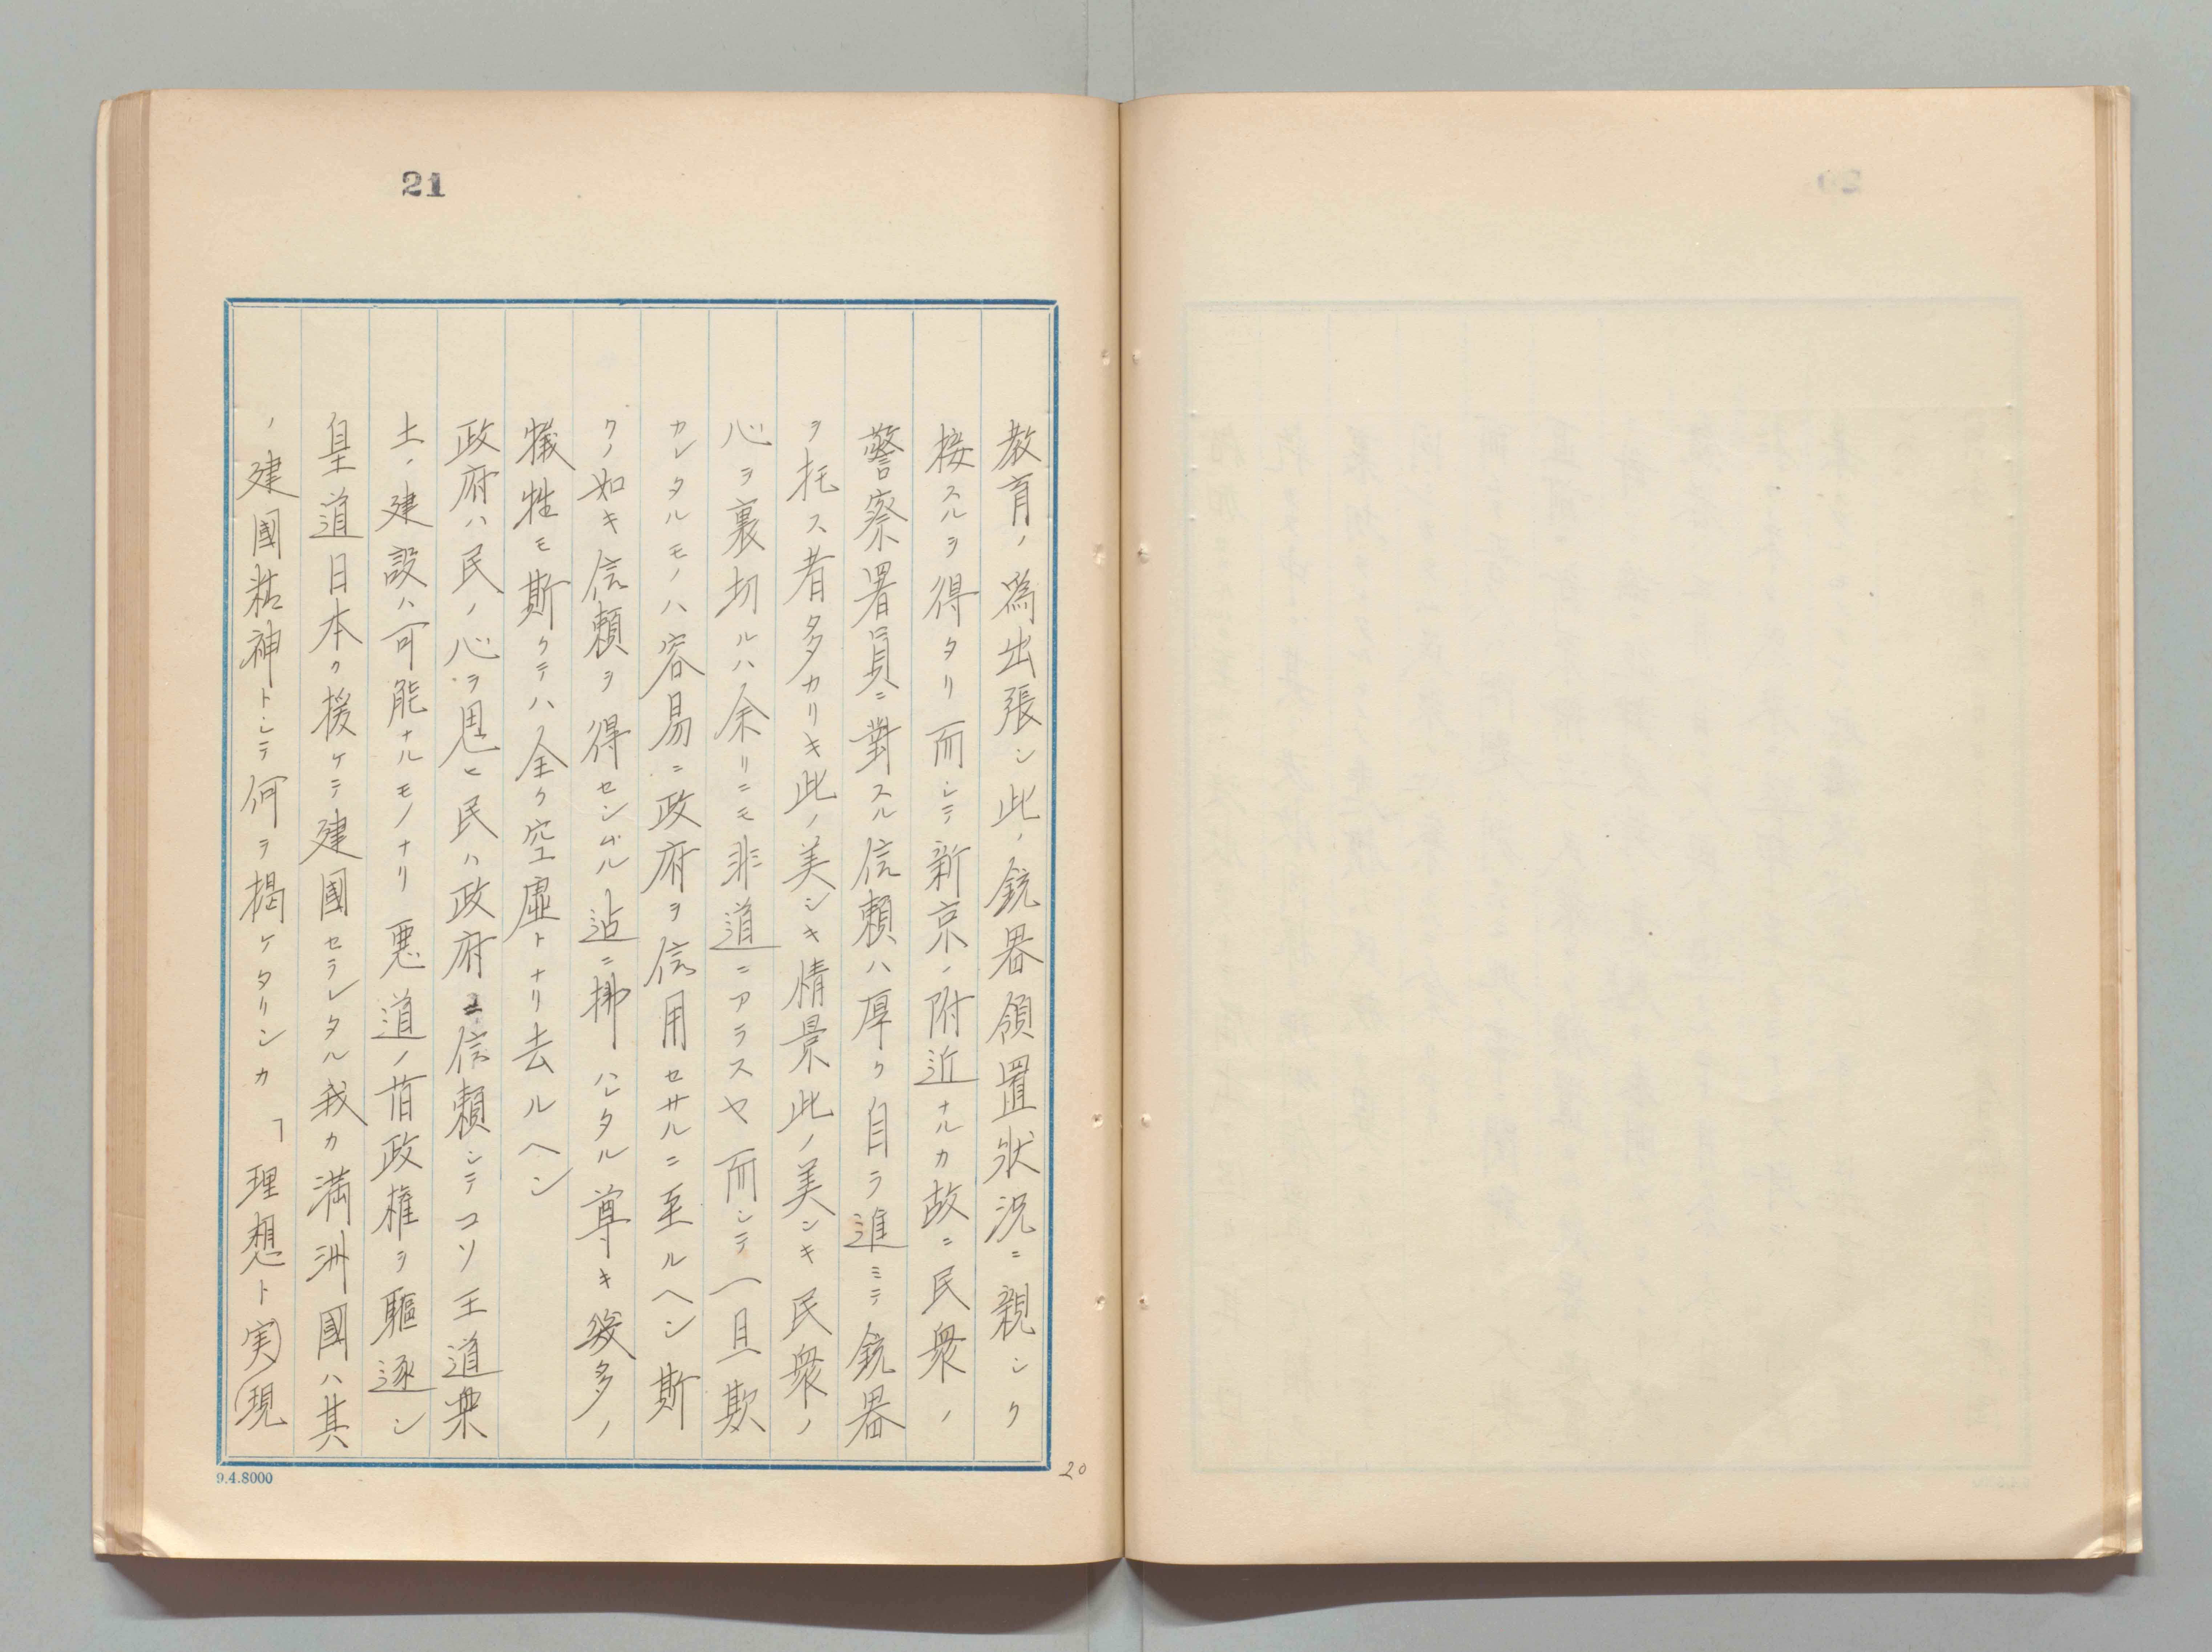 21
教育ノ為出張シ此ノ銃器領置状況ニ親シク
接スルヲ得タリ而シテ新京ノ附近ナルカ故ニ民衆ノ
警察署員ニ對スル信頼ハ厚ク自ラ進ミテ銃器
ヲ托ス者多カリキ此ノ美シキ情景此ノ美シキ民衆ノ
心ヲ裏切ルハ余リニモ非道ニアラスヤ而シテ一旦欺
カレタルモノハ容易ニ政府ヲ信用セサルニ至ルヘシ斯
クノ如キ信頼ヲ得センガル迠ニ拂ハレタル尊キ幾多ノ
犠牲モ斯クテハ全ク空虚トナリ去ルヘシ
政府ハ民ノ心ヲ思ヒ民ハ政府ニ信頼シテコソ王道楽
土ノ建設ハ可能ナルモノナリ悪道ノ旧政権ヲ驅逐シ
皇道日本ク援ケテ建國セラレタル我カ満洲國ハ其
ノ建國精神トシテ何ヲ掲ケタリシカ「理想ト実現
20
9.4.8000